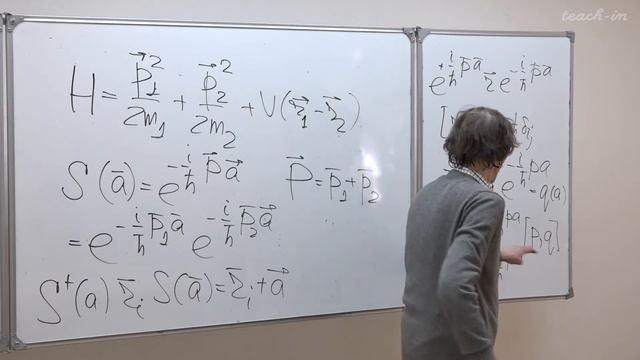 teach-in
H = \vec{p}_1^2/2m_1 + \vec{p}_2^2/2m_2 + V(\vec{r}_1 - \vec{r}_2)
S(\bar{a}) = e^{-\frac{i}{\hbar} \vec{P} \vec{a}} \vec{P} = \bar{p}_1 + \bar{p}_2
= e^{-\frac{i}{\hbar} \bar{p}_1 \bar{a}} e^{-\frac{i}{\hbar} \bar{p}_2 \vec{a}}
S^+(a) \bar{r}_i S(\bar{a}) = \bar{r}_i + \vec{a}
e^{+\frac{i}{\hbar} \bar{p} \bar{a}} \vec{r} e^{-\frac{i}{\hbar} \bar{p} \bar{a}}
[ δ_{ij}
e^{-\frac{i}{\hbar} pa} = q(a)
pa [p, q]